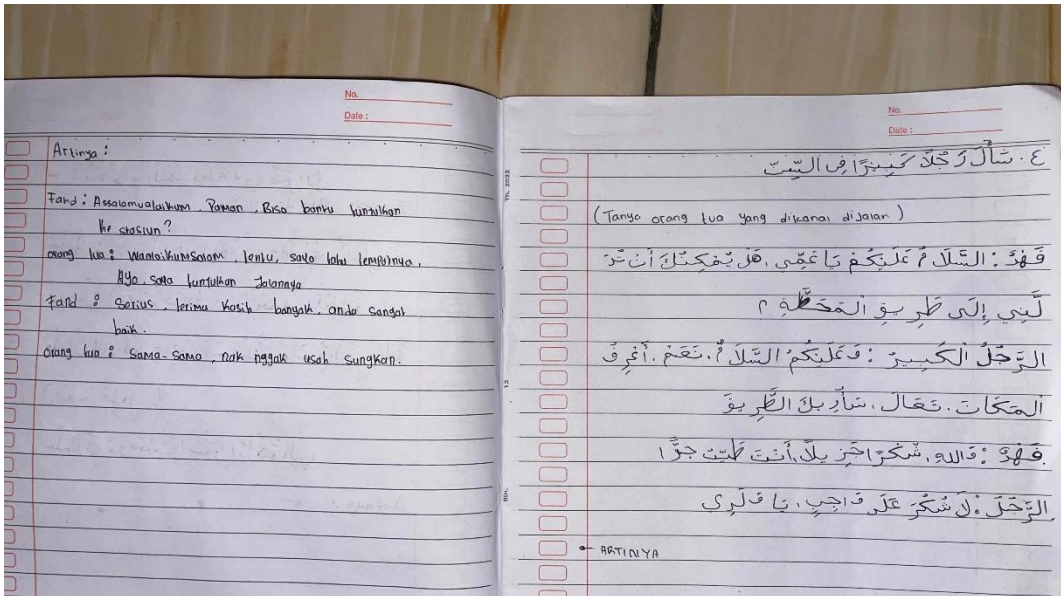 No.
Date :
Artinya :
Fahd : Assalamualaikum, Paman, Bisa bantu tuntulkan
ke stasiun ?
orang tua : waalaikumsalam, tentu, saya tahu tempatnya,
Ayo, saya tuntulkan Jalannya
Fahd : Serius, terima kasih banyak, anda sangat
baik.
orang tua : sama-sama, nak nggak usah sungkan.
No.
Date :
٤. سَأَلَ رَجُلًا كَبِيرًا فِى السِّتّ
(Tanya orang tua yang dikanai dijalan)
فَهْدٌ : السَّلَامُ عَلَيْكُمْ يَا عَمِّي، هَلْ يُمْكِنُكَ أَنْ تَدُ
لَّنِي إِلَى طَرِيقِ الْمَحَطَّةِ ؟
الرَّجُلُ الْكَبِيرُ : وَعَلَيْكُمْ السَّلَامُ، نَعَمْ، أَعْرِفُ
الْمَكَانَ، تَعَالَ، سَأُرِيكَ الطَّرِيقَ
فَهْدٌ : وَالله، شُكْرًا جَزِيلًا، أَنْتَ طَيِّبٌ جِدًّا
الرَّجُلُ : لَا شُكْرَ عَلَى وَاجِبٍ، يَا وَلَدِى
ARTINYA